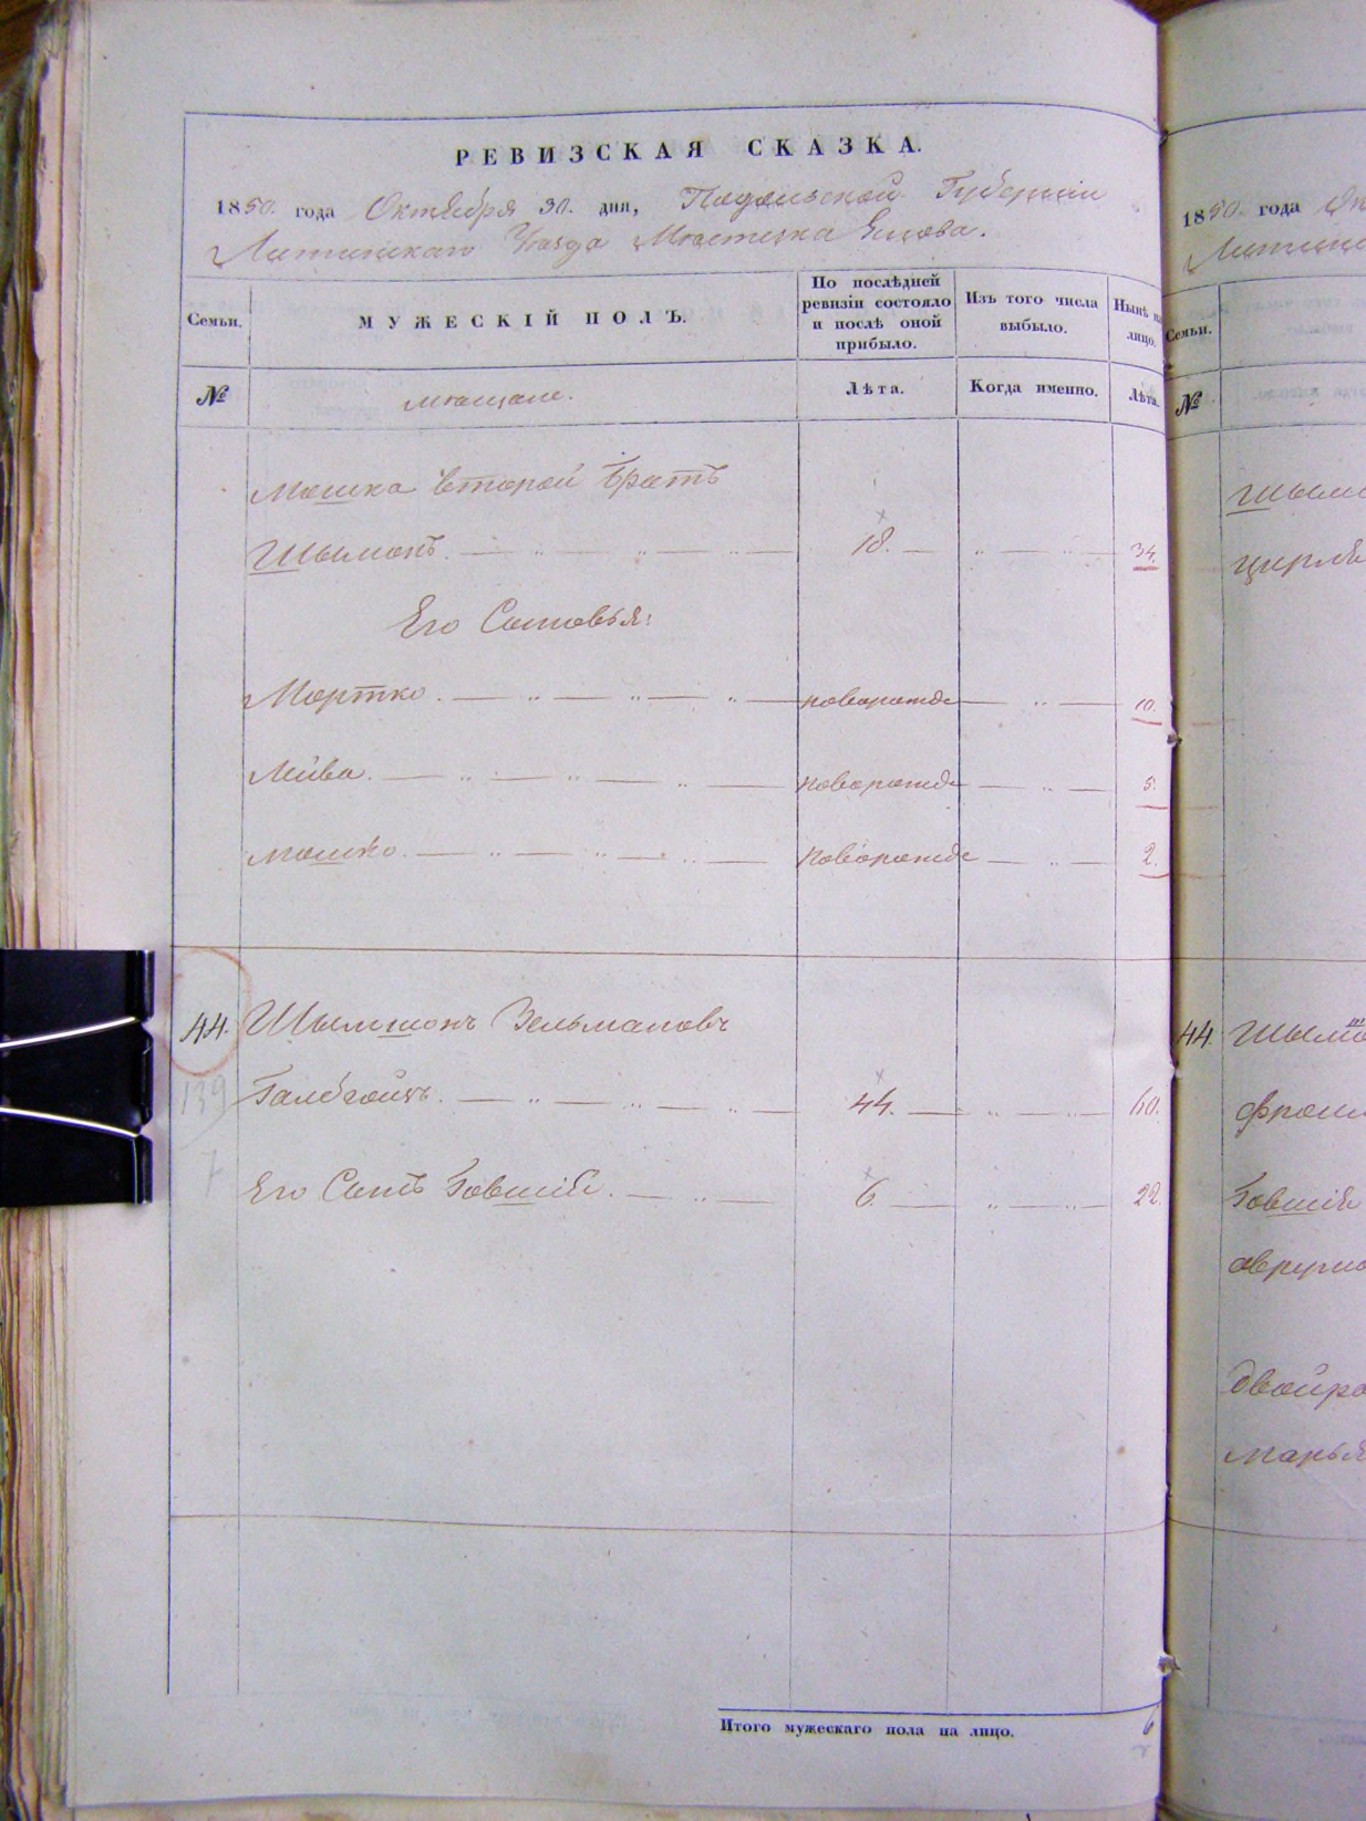 РЕВИЗСКАЯ СКАЗКА.
1850. года Октября 30. дня, Подольской Губернии
Литинскаго Уезда Местечка
Семьи.
МУЖЕСКІЙ ПОЛЪ.
По послѣдней ревизіи состояло и послѣ оной прибыло.
Изъ того числа выбыло.
Нынѣ на лицо.
№
мещане.
Лѣта.
Когда именно.
Лѣта.
Мошка второй братъ
Шымонъ. 18. 34.
Его Сыновья:
Мортко. новорожде 10.
Лейба. новорожде 5.
Мошко. новорожде 2.
44. Шымшонъ Зельмановъ
139 44. 60.
7 Его Сынъ Іовшій. 6. 22.
Итого мужескаго пола на лицо. 6
1850 года
Семьи.
№
44.
Іовшій
двойра